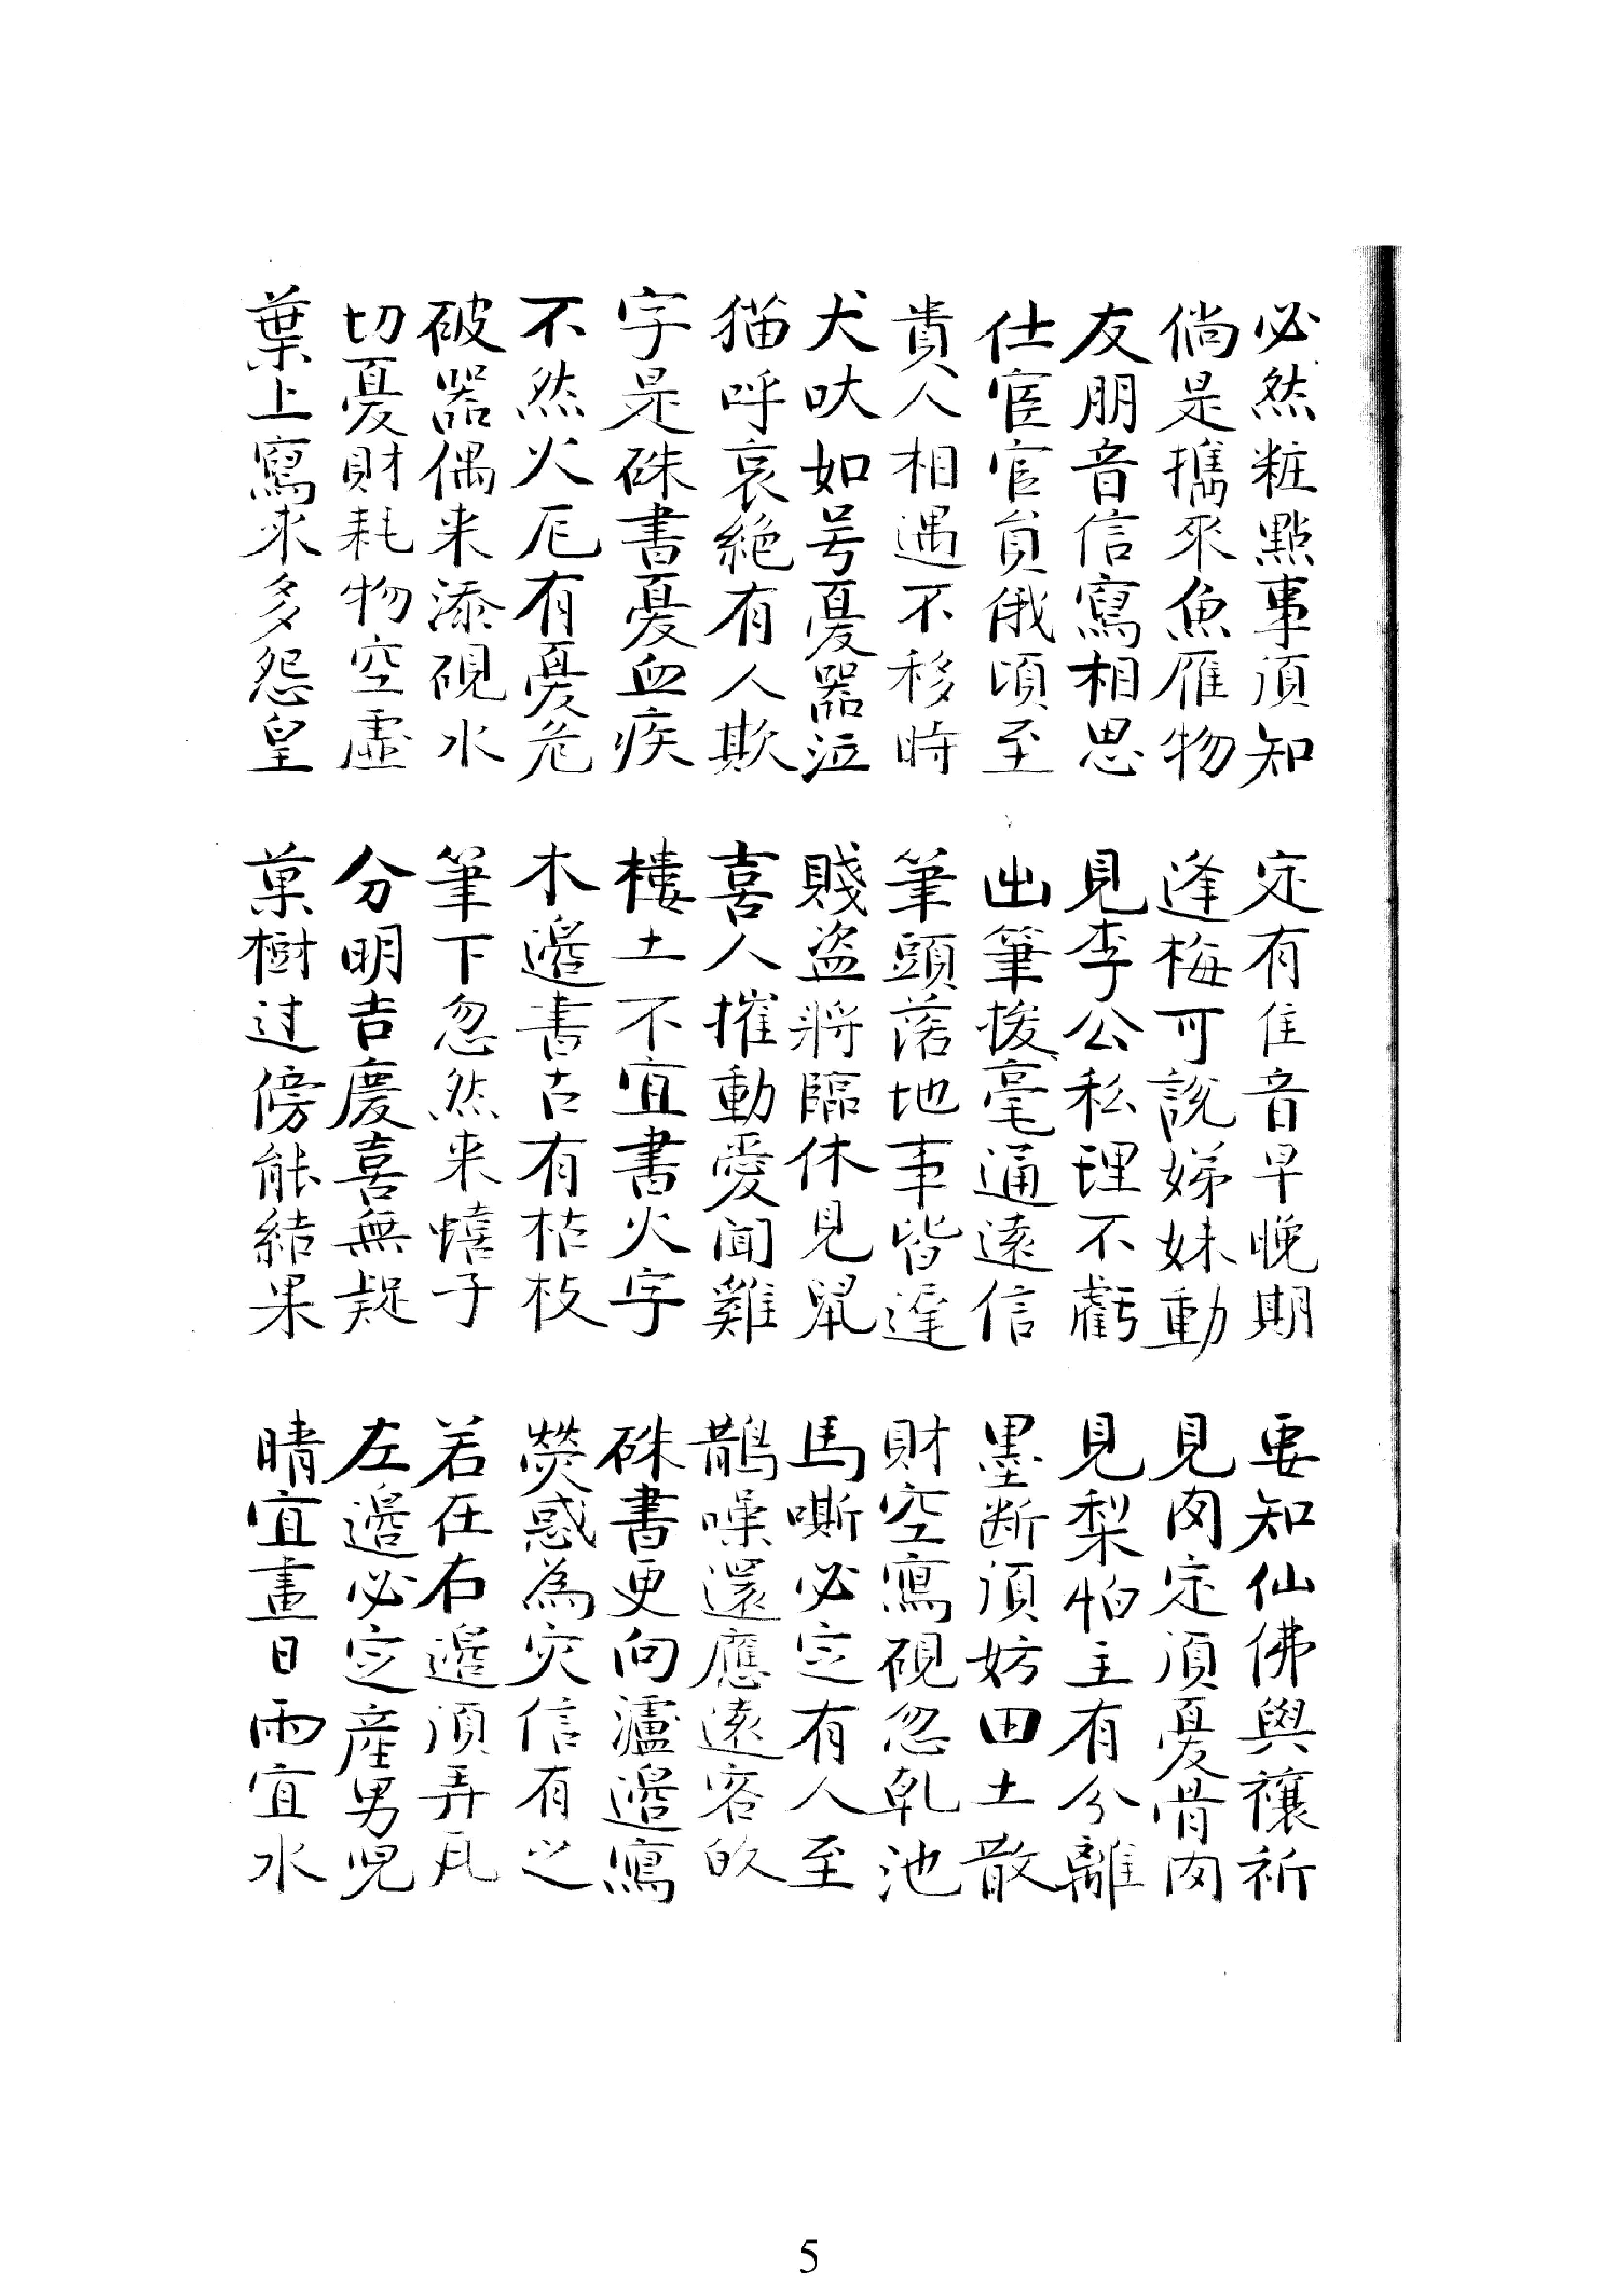 必然粧點事須知　定有佳音早晚期　要知仙佛與禳祈
倘是擕來魚雁物　逢梅可說娣妹動　見肉定須憂骨肉
友朋音信寫相思　見李公私理不虧　見梨怕主有分離
仕宦官員俄頃至　出筆拨毫通遠信　墨断須妨田土散
貴人相遇不移時　筆頭落地事皆遲　財空寫硯忽乹池
犬吠如号憂器泣　賤盗將臨休見鼠　馬嘶必定有人至
猫呼哀絶有人欺　喜人摧動愛聞雞　鵲噪還應遠客皈
字是硃書憂血疾　樓土不宜書火字　硃書更向瀘邊寫
不然火厄有憂危　木邊書古有枯枝　熒惑為灾信有之
破器偶来添硯水　筆下忽然来蟢子　若在右邊須弄瓦
切憂財耗物空虛　分明吉慶喜無疑　左邊必定産男児
葉上寫來多怨皇　菓樹过傍能結果　晴宜畫日雨宜水
5